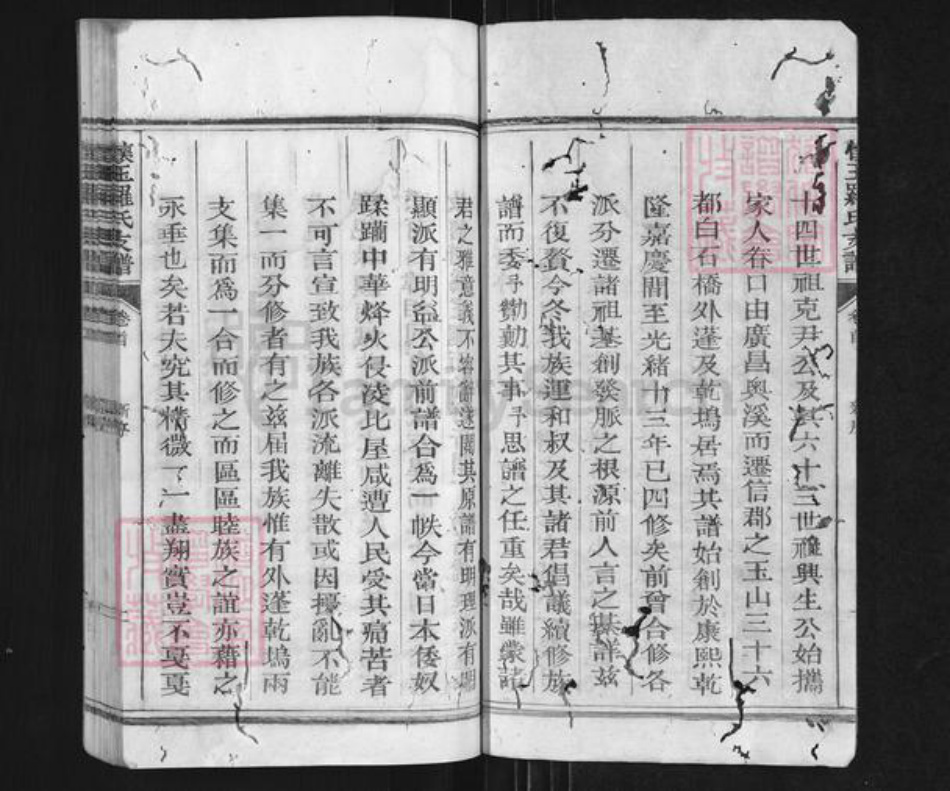 十四世祖克尹公及其六十三世祖興生公始攜
家人眷口由廣昌興溪而遷信郡之玉山三十六
都白石橋外蓬及乾塢居焉其譜始創於康熙乾
隆嘉慶間至光緒十三年已四修矣前曾合修各
派分遷諸祖基創發脈之根源前人言之綦詳茲
不復贅今冬我族運和叔及其諸君倡議續修族
譜而委予勷勤其事予思譜之任重矣哉雖蒙諸
君之雅意義不容辭遂閱其原譜有明理派有明
顯派有明益公派前譜合爲一帙今當日本倭奴
蹂躪中華烽火侵凌比屋咸遭人民受其痛苦者
不可言宣致我族各派流離失散或因擾亂不能
集一而分修者有之茲屆我族惟有外蓬乾塢兩
支集而爲一合而修之而區區睦族之誼亦藉之
永垂也矣若夫究其精微一一盡翔實豈不戛戛
懷玉羅氏支譜
卷首
新序